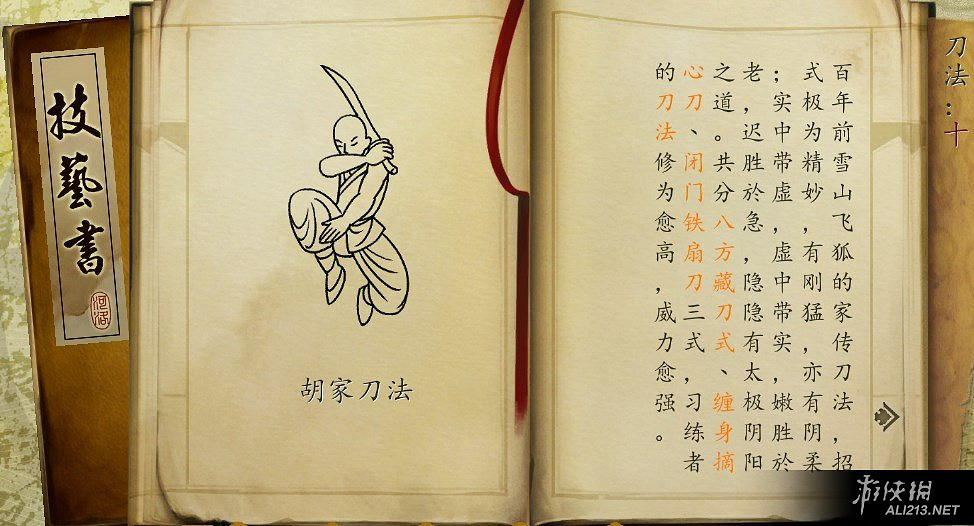 刀法：十
百年前雪山飞狐的家传刀法，招
式极为精妙，有刚猛，亦有阴柔
；实中带虚，虚中带实，嫩胜於
老，迟胜於急，隐隐有太极阴阳
之道。共分八方藏刀式、缠身摘
心刀、闭门铁扇刀三式，习练者
的刀法修为愈高，威力愈强。
胡家刀法
技藝書
河洛
游侠網
ALI213.NET